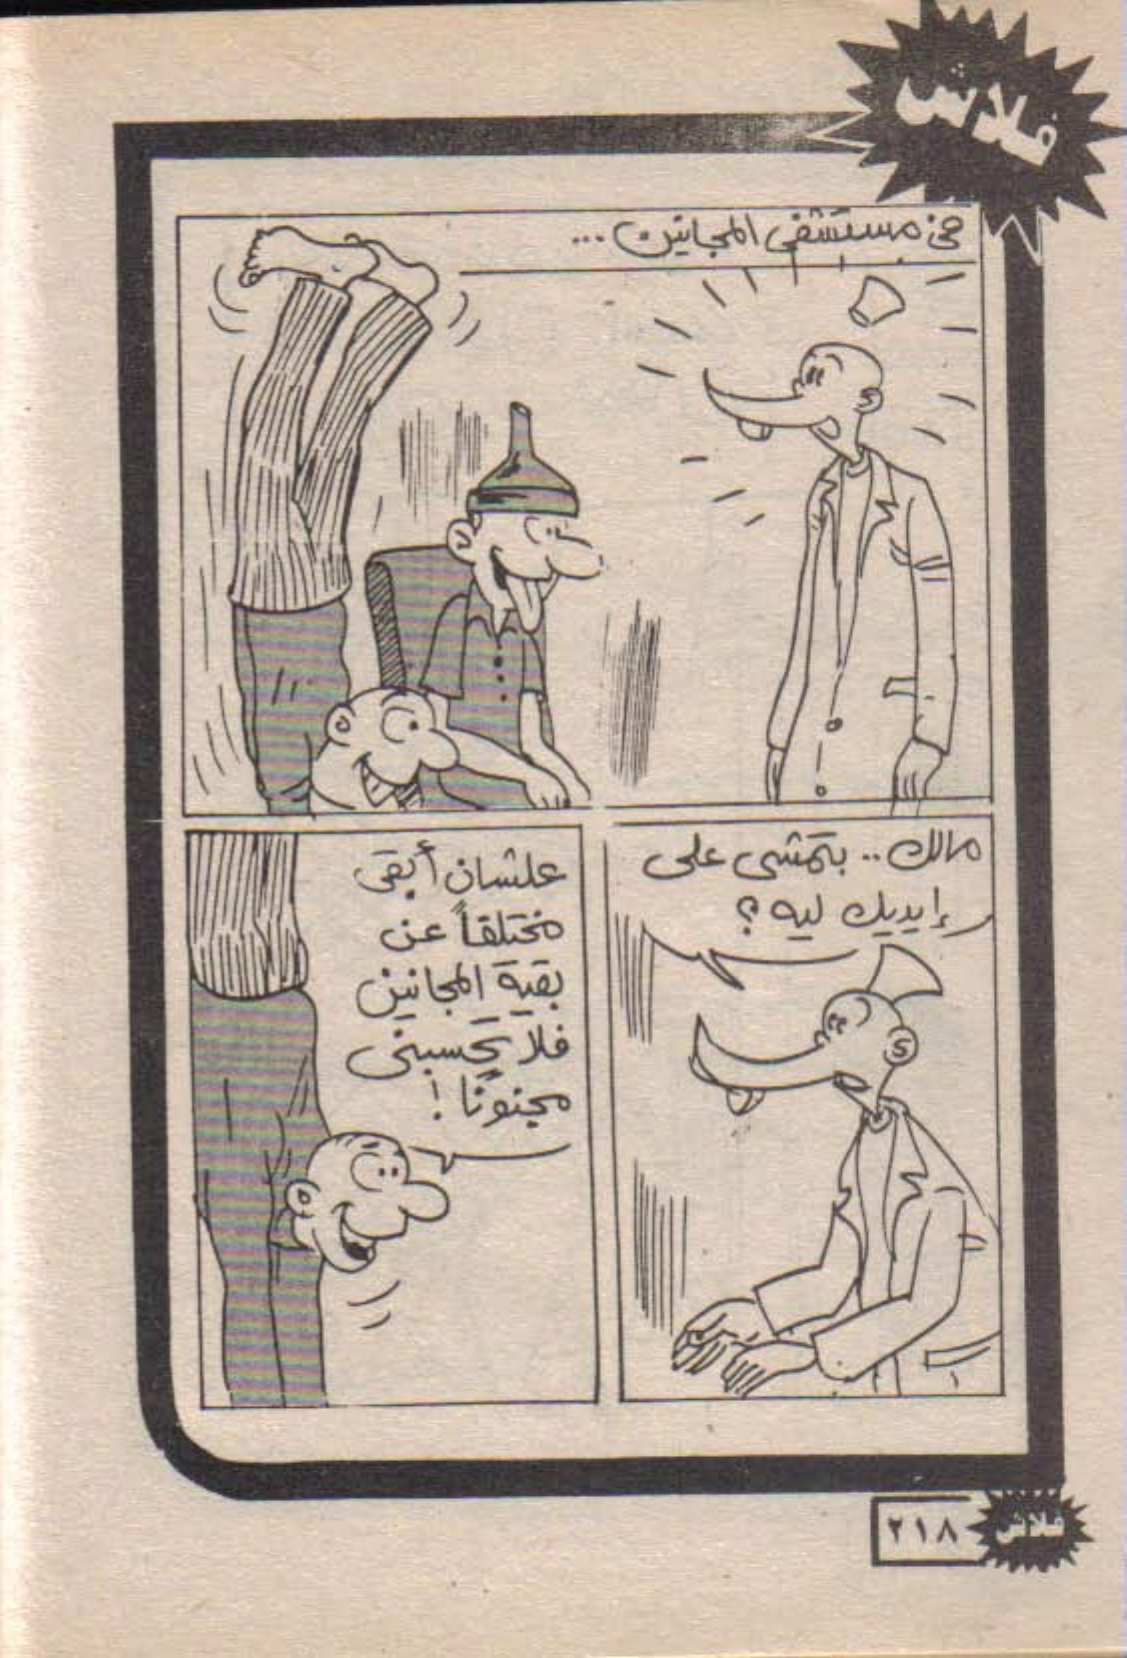 فلاش
فى مستشفى المجانين...
مالك.. بتمشى على
إيديك ليه؟
علشان أبقى
مختلفاً عن
بقية المجانين
فلا تحسبنى
مجنونًا!
٢١٨
فلاش